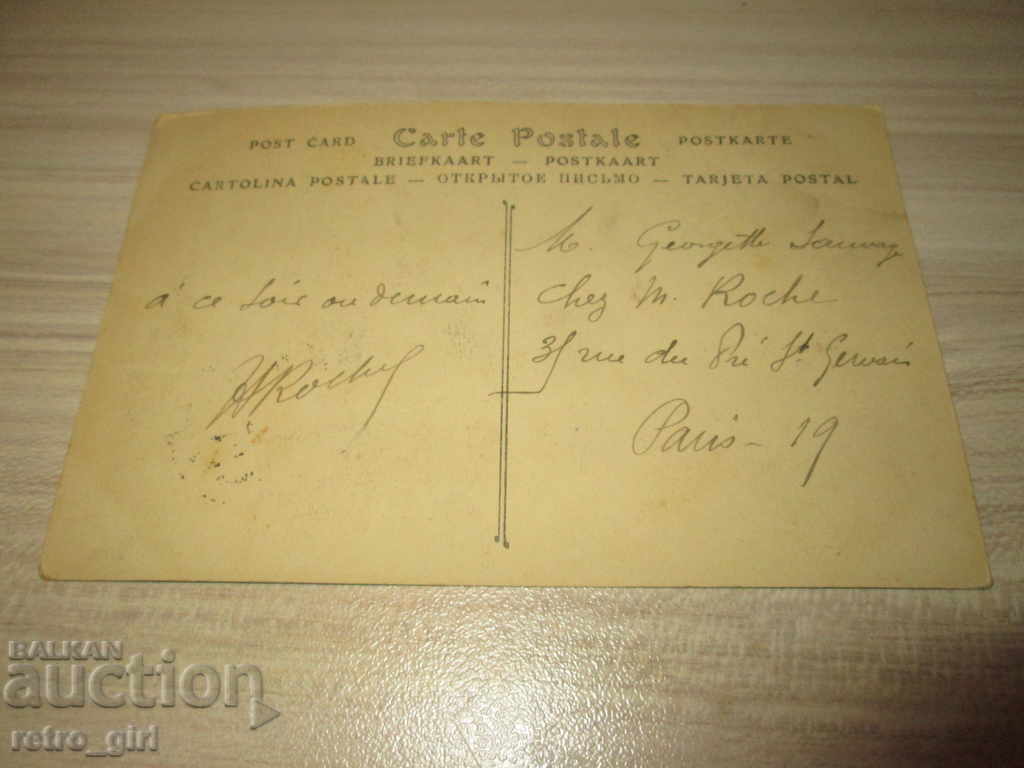 POST CARD Carte Postale POSTKARTE
BRIEFKAART — POSTKAART
CARTOLINA POSTALE — ОТКРЫТОЕ ПИСЬМО — TARJETA POSTAL
à ce soir ou demain
M. Georgette
chez M. Roche
rue du Pré St Gervais
Paris - 19
BALKAN
auction
retro_girl